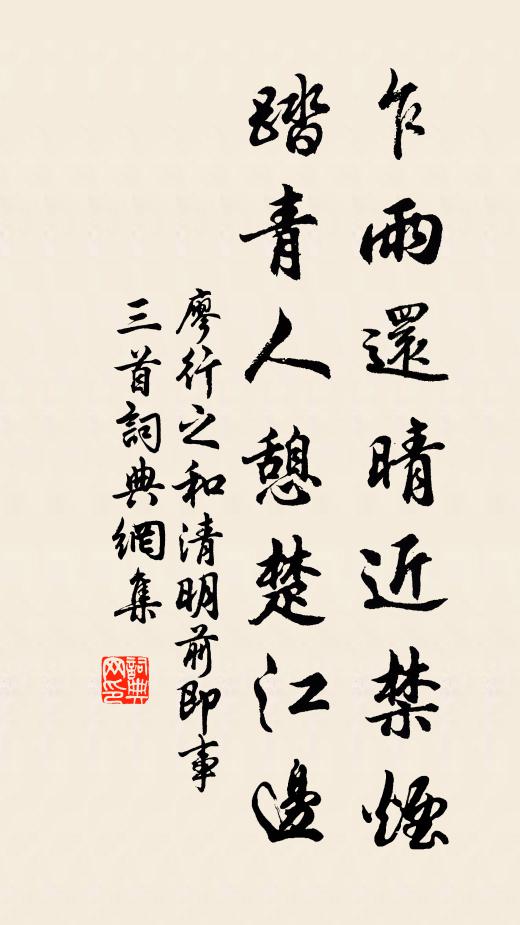 乍雨還晴近禁煙
踏青人憩楚江邊
廖行之和清明前即事
三首詞典網集
詞典
网印